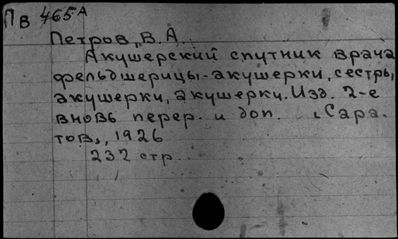 Пв 465А
Петров, В. А.
Акушерский спутник врача
фельдшерицы-акушерки, сестры,
акушерки, акушерки. Изд. 2-е
вновь перер. и доп. Сара-
тов,, 1926
232 стр